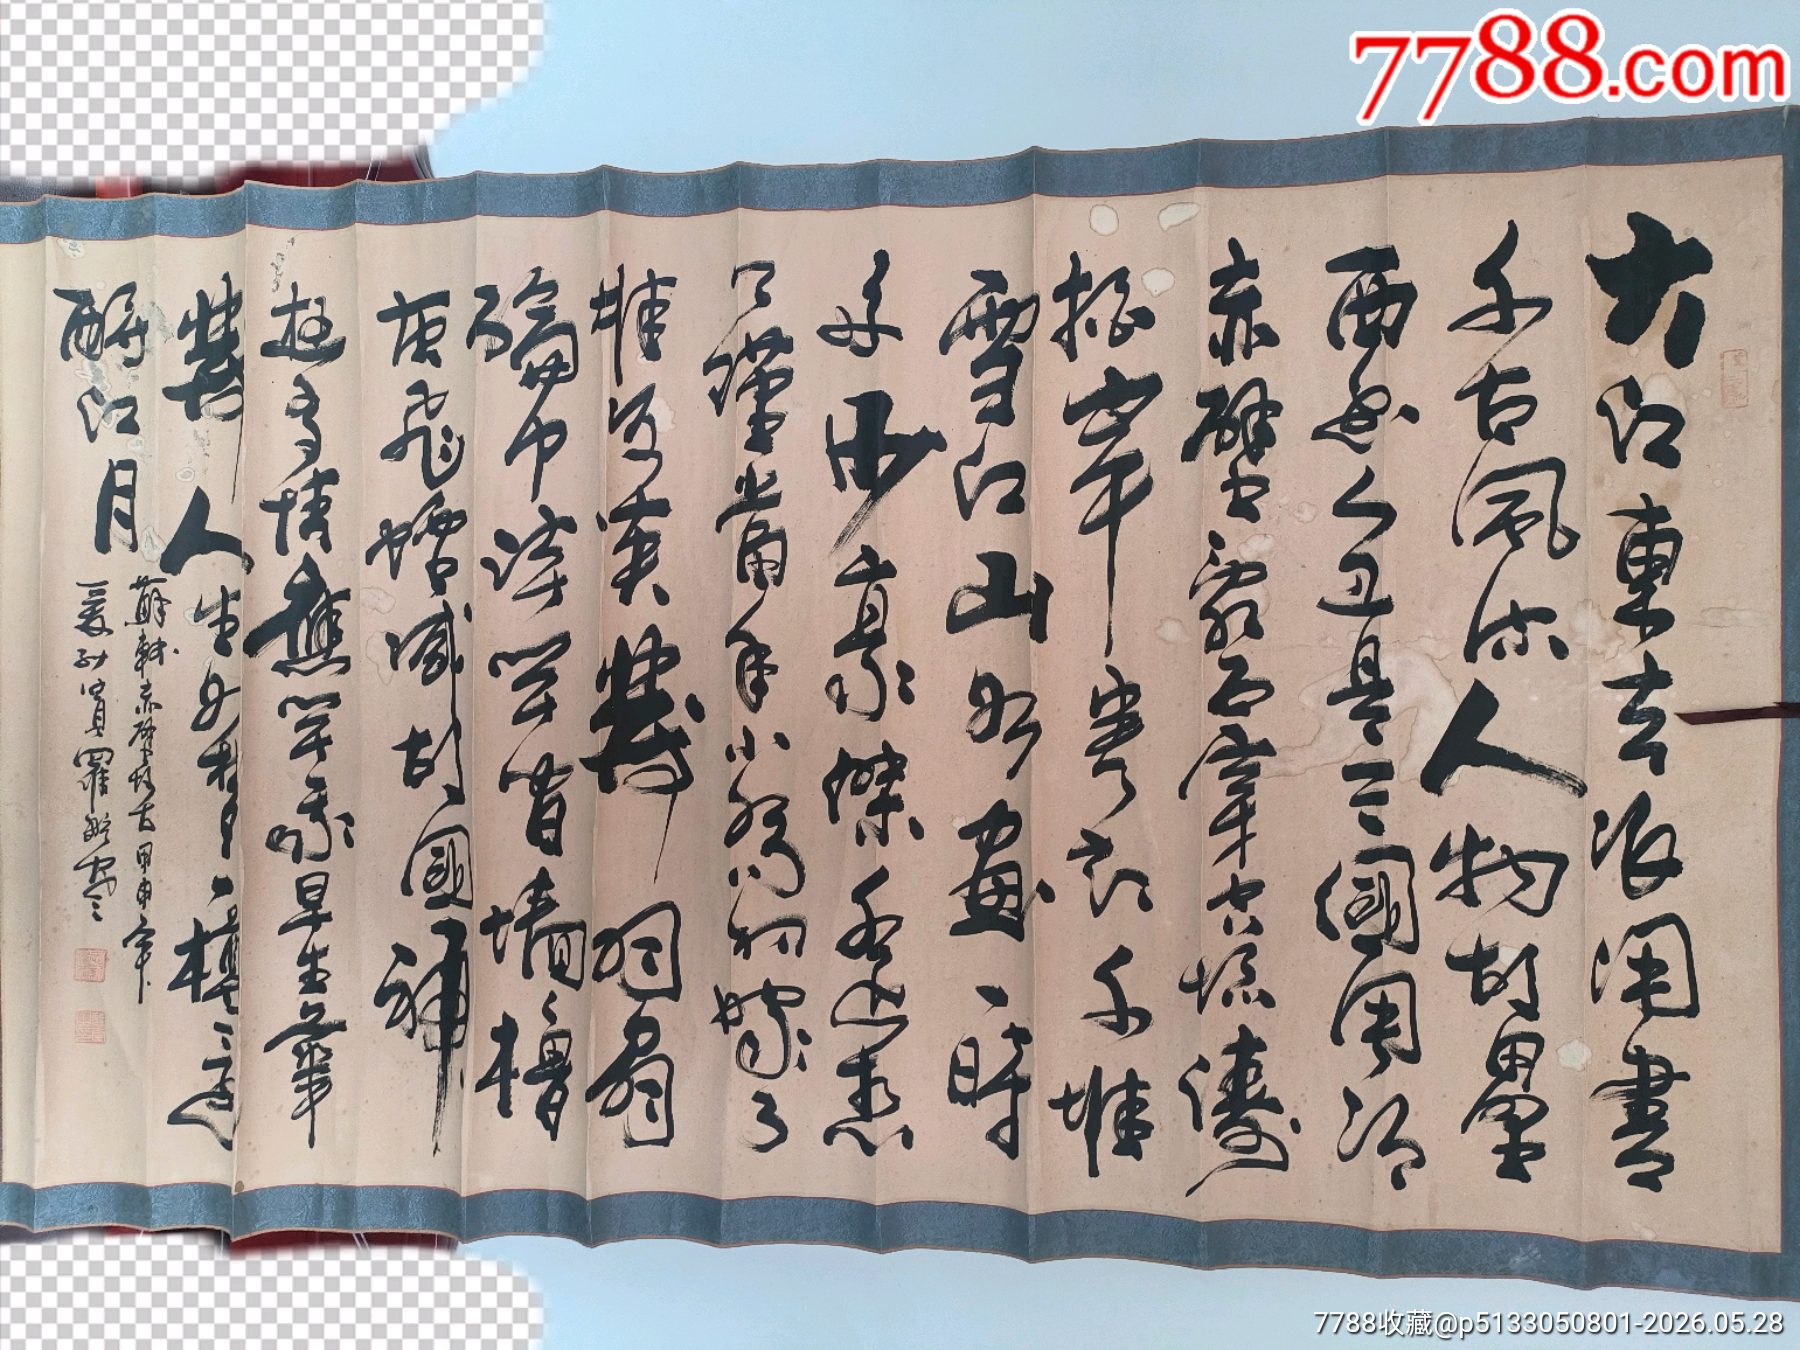 7788.com
大江東去浪淘盡
千古風流人物故壘
西邊人道是三國周郎
赤壁亂石穿空濤
拍岸卷起千堆
雪江山如畫一時
多少豪傑遙想
公瑾當年小喬初嫁了
雄姿英發羽扇
綸巾談笑間墻櫓
灰飛煙滅故國神
遊多情應笑我早生華
髮人生如夢一樽還
酹江月
蘇軾赤壁懷古甲申年
7788收藏@p5133050801-2026.05.28